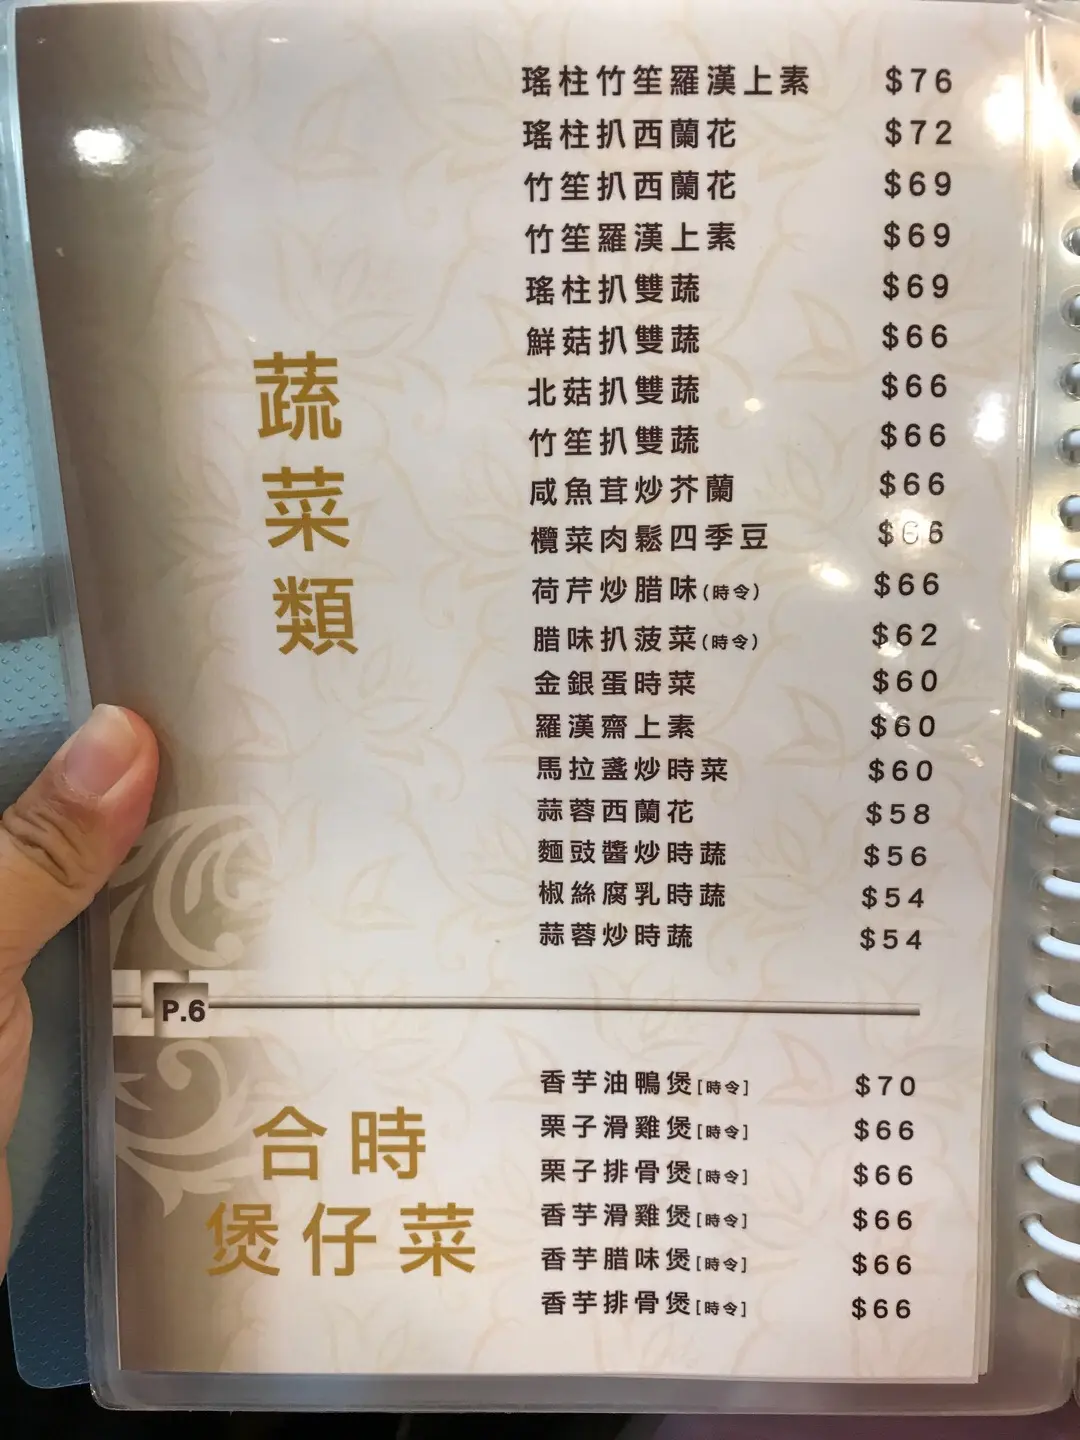 蔬菜類
瑤柱竹笙羅漢上素 $76
瑤柱扒西蘭花 $72
竹笙扒西蘭花 $69
竹笙羅漢上素 $69
瑤柱扒雙蔬 $69
鮮菇扒雙蔬 $66
北菇扒雙蔬 $66
竹笙扒雙蔬 $66
咸魚茸炒芥蘭 $66
欖菜肉鬆四季豆 $66
荷芹炒腊味(時令) $66
腊味扒菠菜(時令) $62
金銀蛋時菜 $60
羅漢齋上素 $60
馬拉盞炒時菜 $60
蒜蓉西蘭花 $58
麵豉醬炒時蔬 $56
椒絲腐乳時蔬 $54
蒜蓉炒時蔬 $54
P.6
合時
煲仔菜
香芋油鴨煲[時令] $70
栗子滑雞煲[時令] $66
栗子排骨煲[時令] $66
香芋滑雞煲[時令] $66
香芋腊味煲[時令] $66
香芋排骨煲[時令] $66